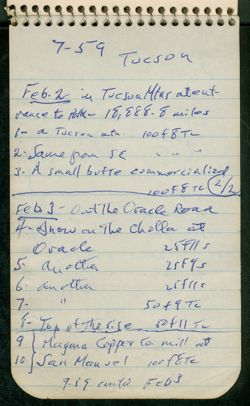 7-59
Tucson
Feb. 2 - in Tucson Mtns at ent-
rance to 18,888.8 miles
1- a Tucson mtn. 100f8Tc
2. Same from SE " " "
3. A small butte commercialized
100f8Tc 2/2
Feb 3 - Out the Oracle Road
4- Snow on the Cholla at
Oracle 25f11s
5- Another 25f9s
6- another 25f11s
7- " 50f9Tc
8- Top of the rise 50f11Tc
9 } Magma Copper Co. mill at
10 } San Manuel 100f8Tc
959 Feb 3